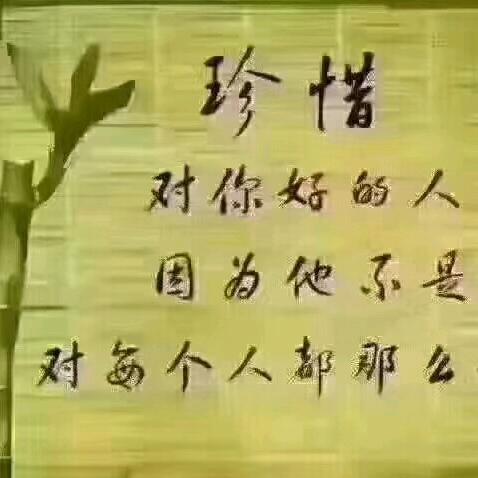 珍惜
对你好的人
因为他不是
对每个人都那么